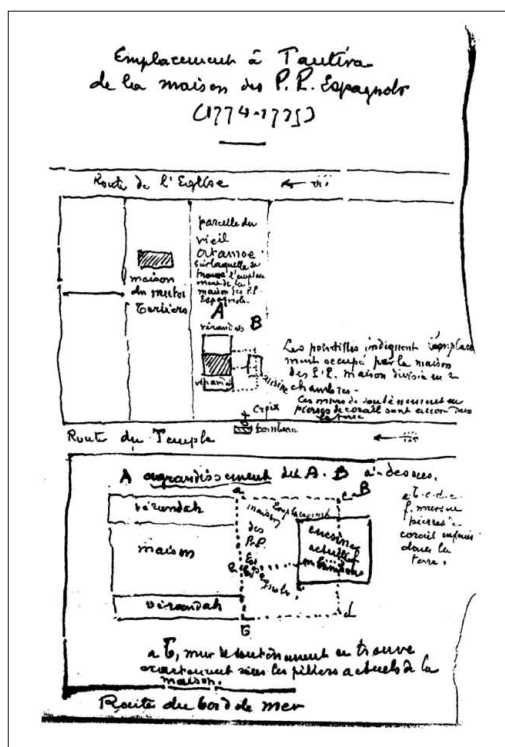 Emplacement à Tautira
de la maison des P.P. Espagnols
(1774-1775)
Route de l'Eglise
parcelle du
vieil
ortamoe
sur laquelle se
trouve l'empla
ment de la
maison des P.P.
Espagnols.
maison
du mutoi
Teriiero
A
B
vérandah
vérandah
cuisine
Les pointillés indiquent l'emplace
ment occupé par la maison
des P.P. maison divisée en 2
chambres.
Ces murs de soutènement en
pierres de corail sont encore dans
la terre
croix
tombeau
Route du Temple
A agrandissement des A. B ci-dessus.
a
c
B
vérandah
maison
vérandah
Emplacement
maison
des
P.P.
cuisine
actuelle
en bambou
a.b.c.d.e.
f. murs en
pierres de
corail enfouis
dans la
terre.
b
d
a b, mur de soutènement se trouve
exactement sous les piliers actuels de la
maison.
Route du bord de mer